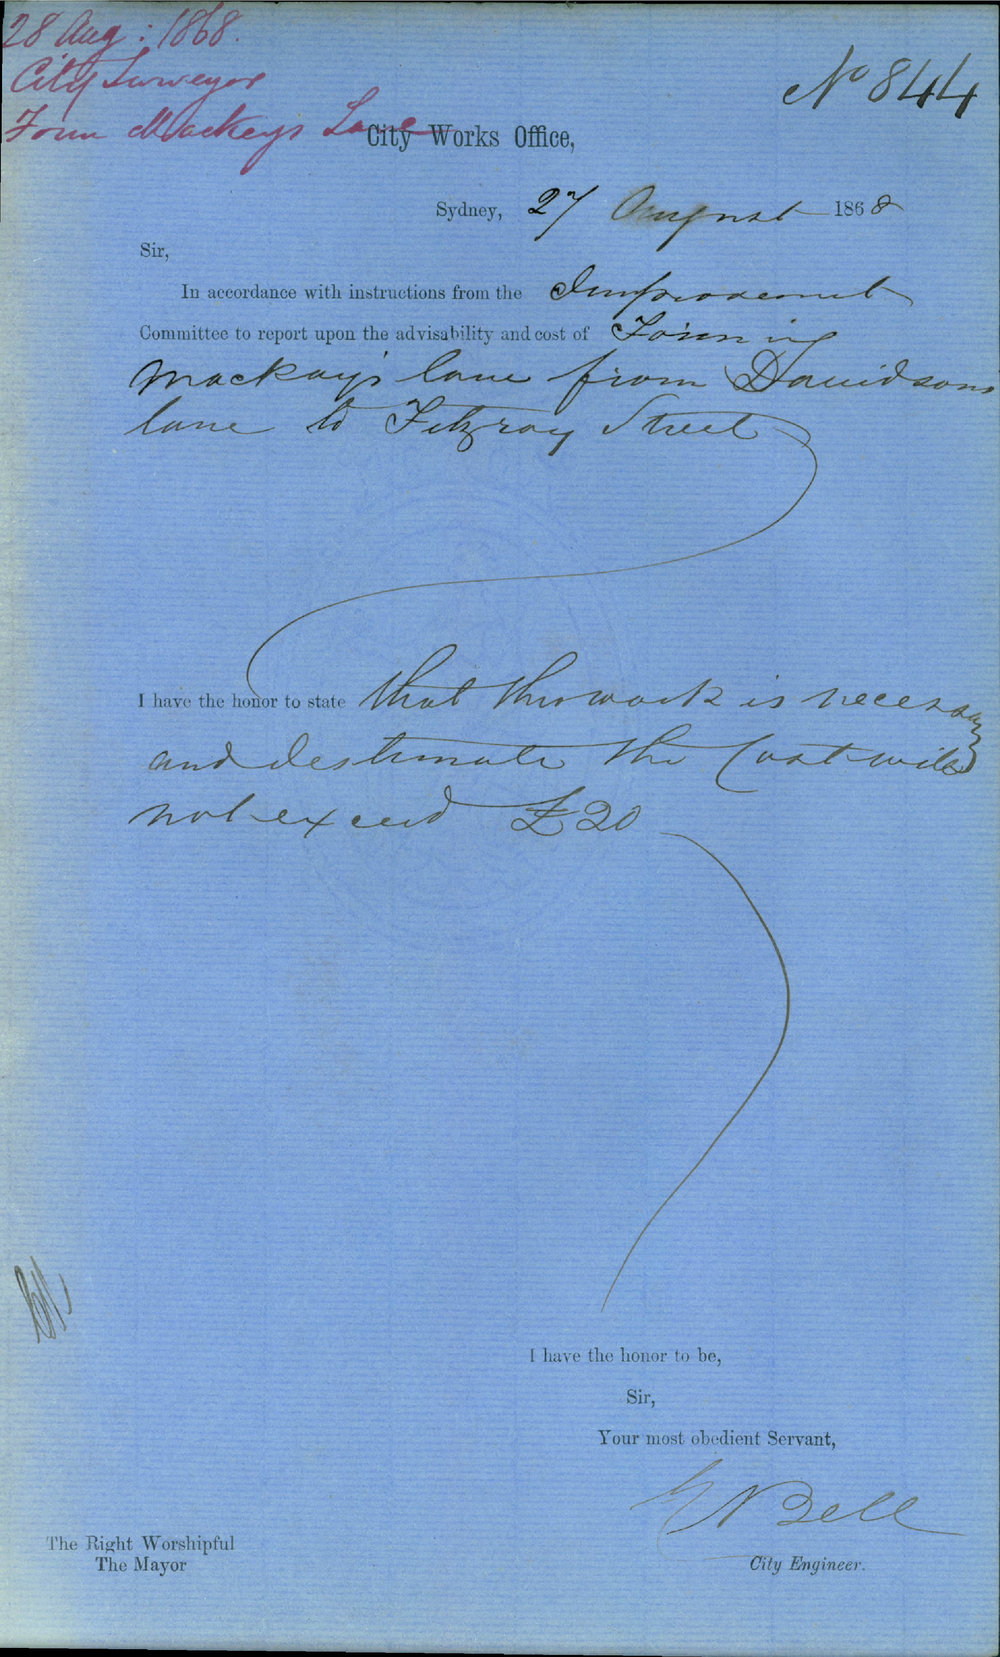 28 Aug: 1868.
City Surveyor
Form Mackeys Lane
No 844
City Works Office,
Sydney, 27 August 1868
Sir,
In accordance with instructions from the Improvement
Committee to report upon the advisability and cost of Forming
Mackay's lane from Davidsons
lane to Fitzroy Street
I have the honor to state that this work is necessary
and I estimate the Cost will
not exceed £20
I have the honor to be,
Sir,
Your most obedient Servant,
Bell
City Engineer.
The Right Worshipful
The Mayor